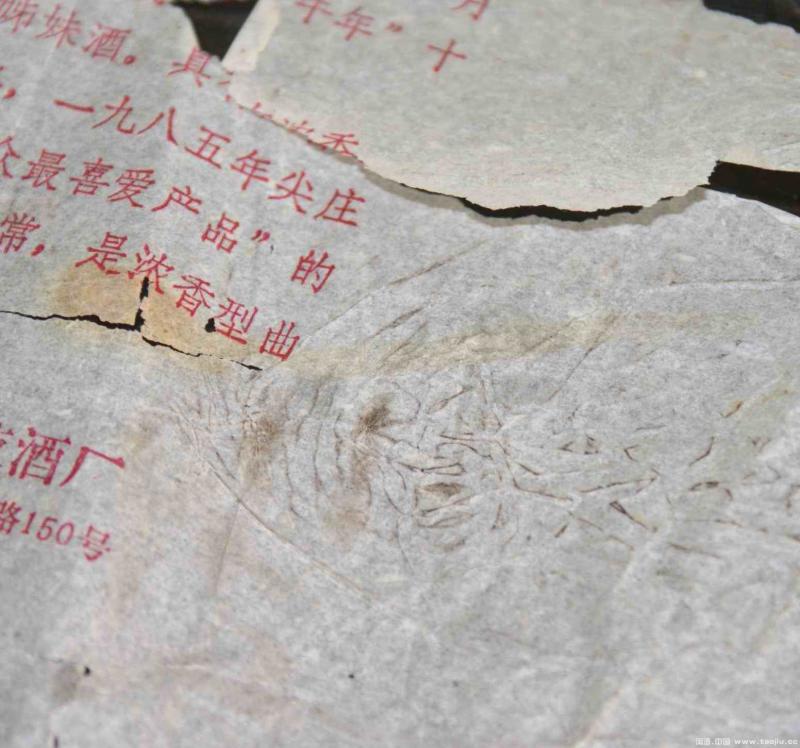 月
年年”十
姊妹酒。具
浓香
，一九八五年尖庄
众最喜爱产品”的
常，是浓香型曲
酒厂
路150号
www.taojiu.cc